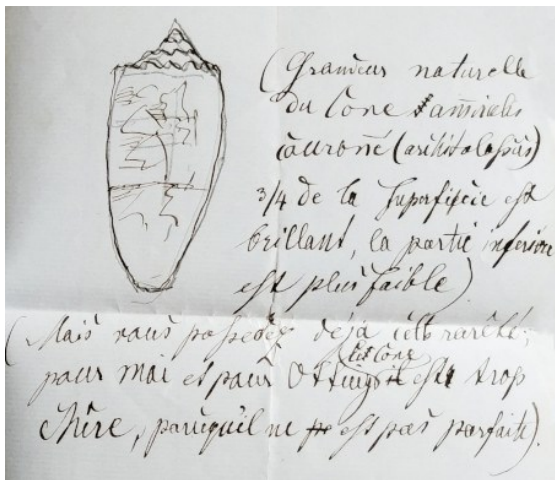 (Grandeur naturelle
du Cone amiral
couronné (archithalassus)
3/4 de la superficie est
brillant, la partie inferieure
est plus faible)
(Mais vous possedez déjà cette rarêté;
(Ce Cone
pour moi et pour est trop
chère, parcequ'il ne est pas parfait).